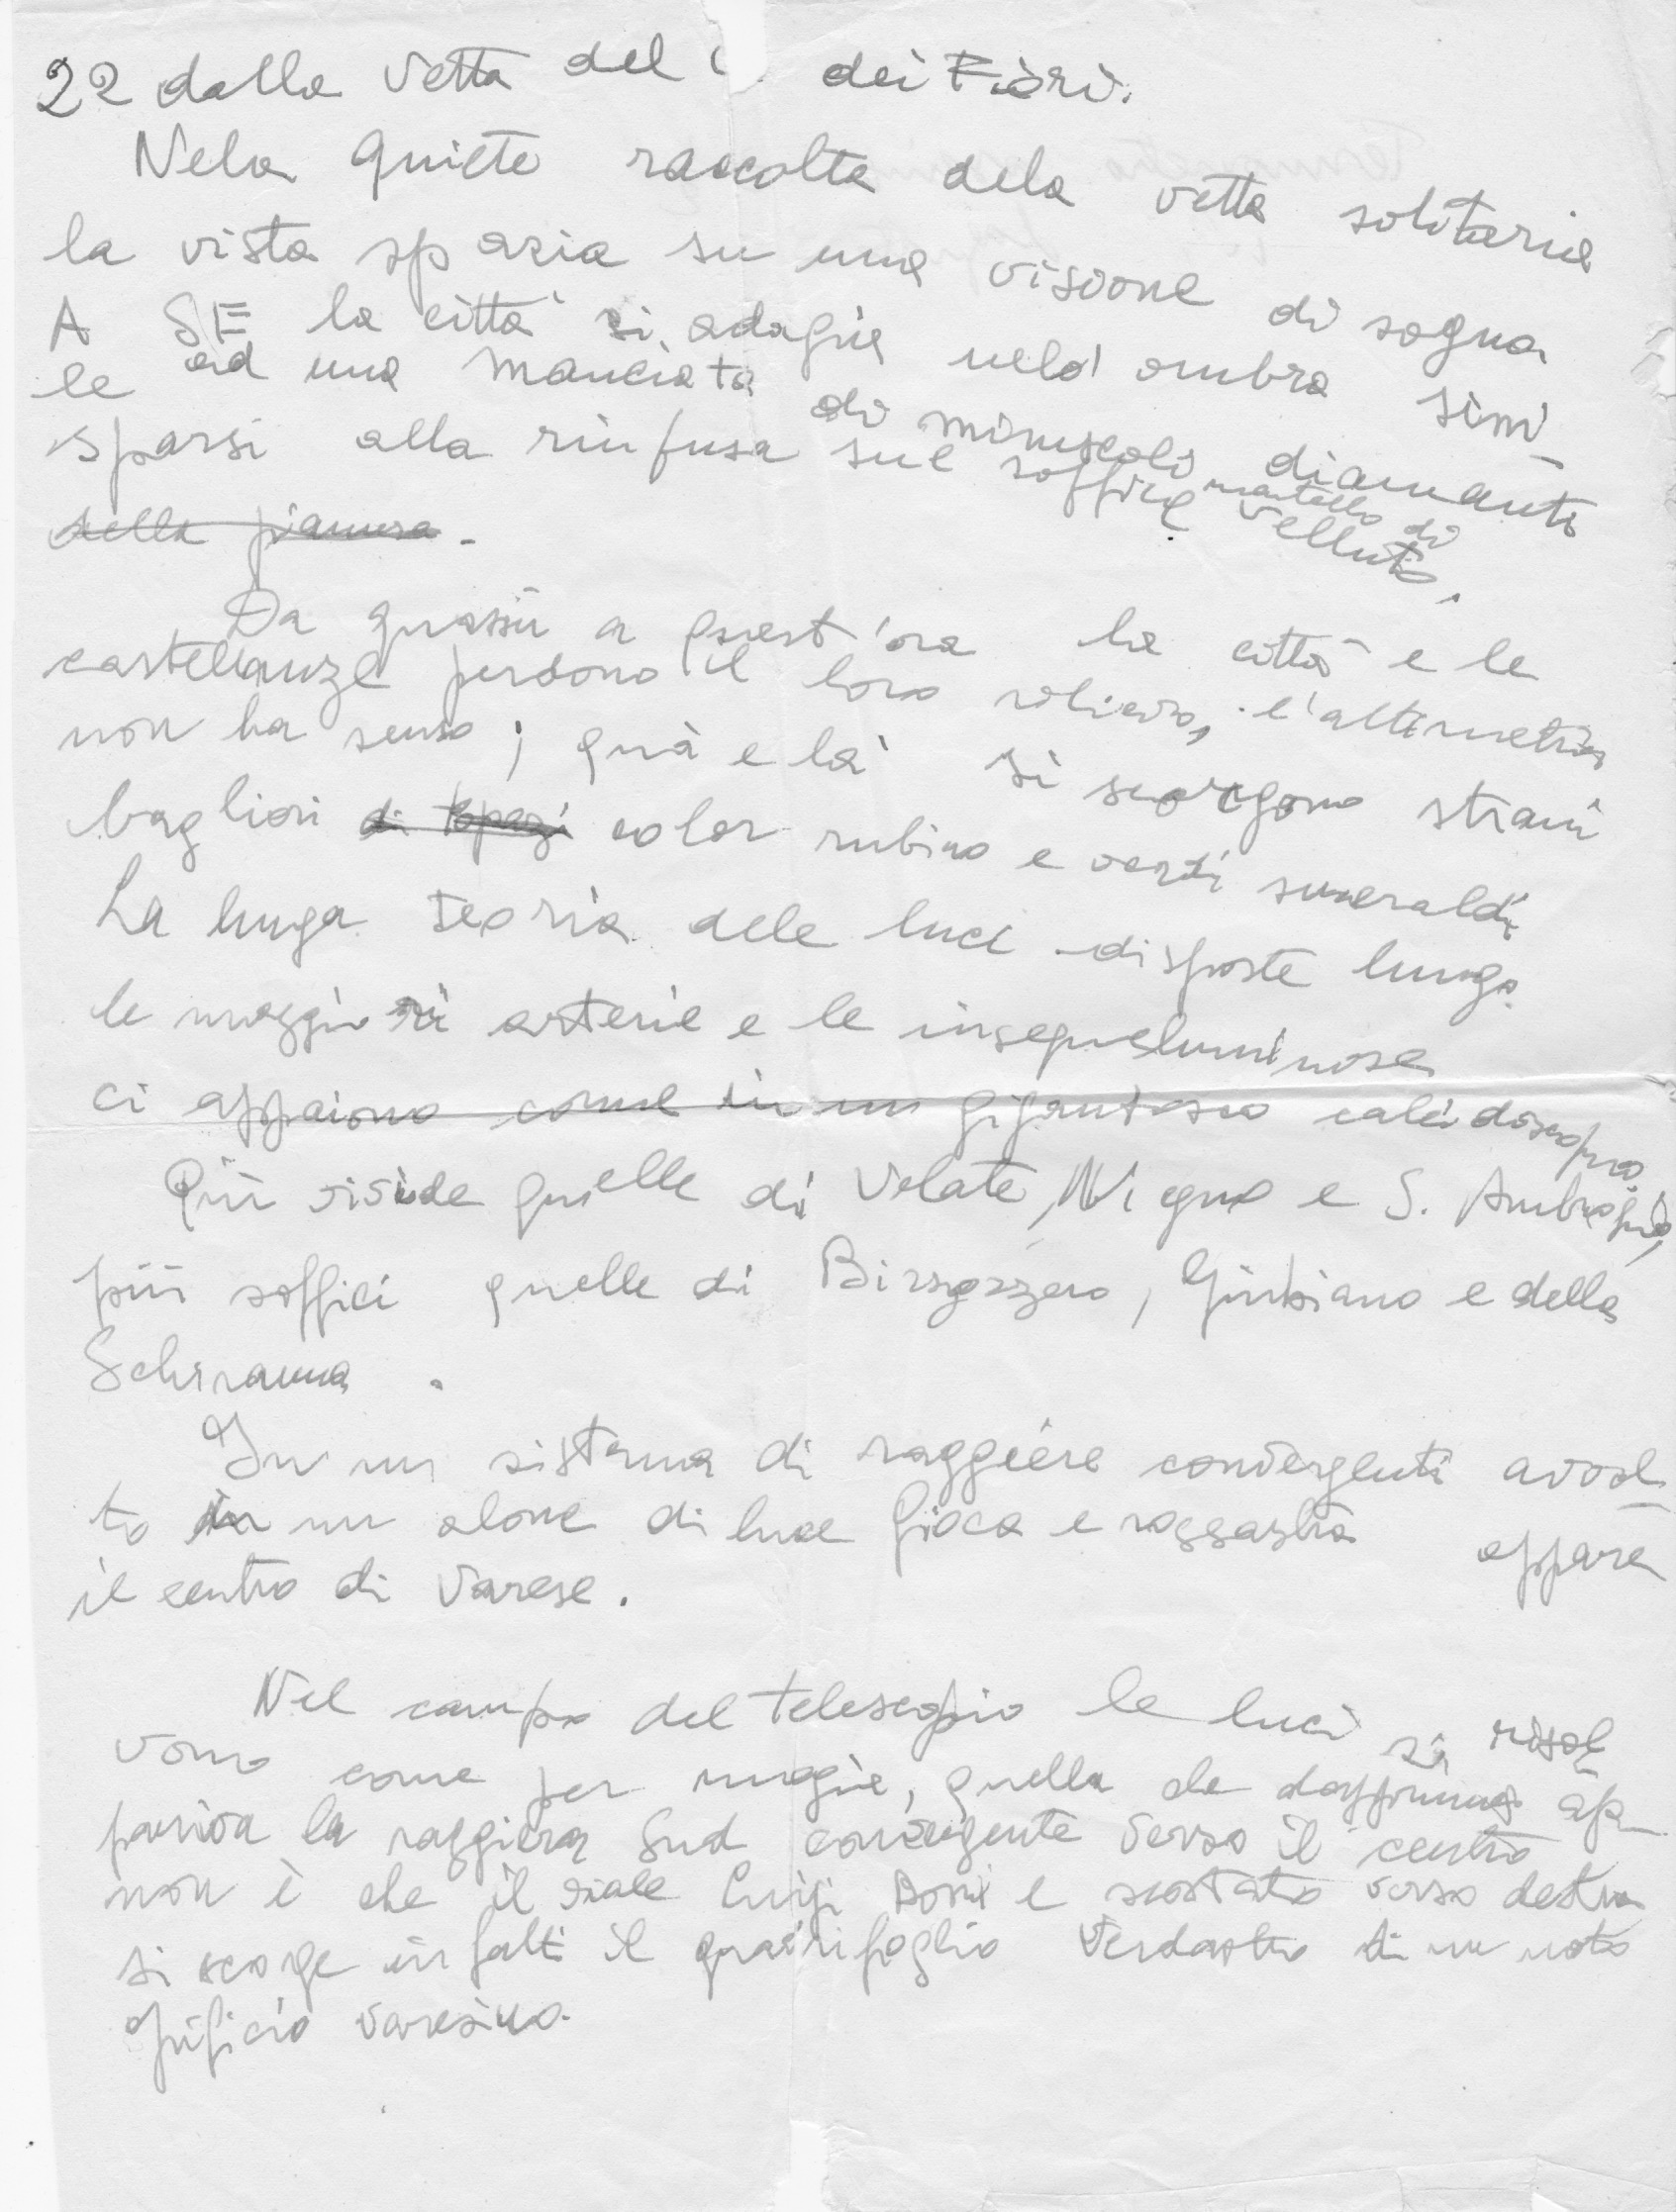 22 dalla vetta del dei Fiori.
Nela quiete raccolta dela vetta solitaria
la vista spazia su una visione di sogno.
A SE la città si adagia nelo' ombra simi-
le ad una manciata di minuscoli diamanti
sparsi alla rinfusa sul soffice mantello di velluto.
della pianura.
Da quassù a quest'ora la città e le
castellanze perdono il loro rilievo, l'altimetria
non ha senso; quà e là si scorgono strani
bagliori di topazi color rubino e verdi smeraldi
La lunga teoria dele luci disposte lungo
le maggiori arterie e le insegne luminose
ci appaiono come in un gigantesco caleidoscopio.
Più vivide quelle di Velate, e S. Ambrogio,
più soffici quelle di Giubiano e della
Schiranna.
In un sistema di raggiere convergenti avvol-
to in un alone di luce fioca e rossastra appare
il centro di Varese.
Nel campo del telescopio le luci si risol-
vono come per magia, quella che dapprima ap-
pariva la raggiera Sud convergente verso il centro
non è che il viale Luigi e spostato verso destra
si scorge infatti il quadrifoglio verdastro di un noto
varesino.